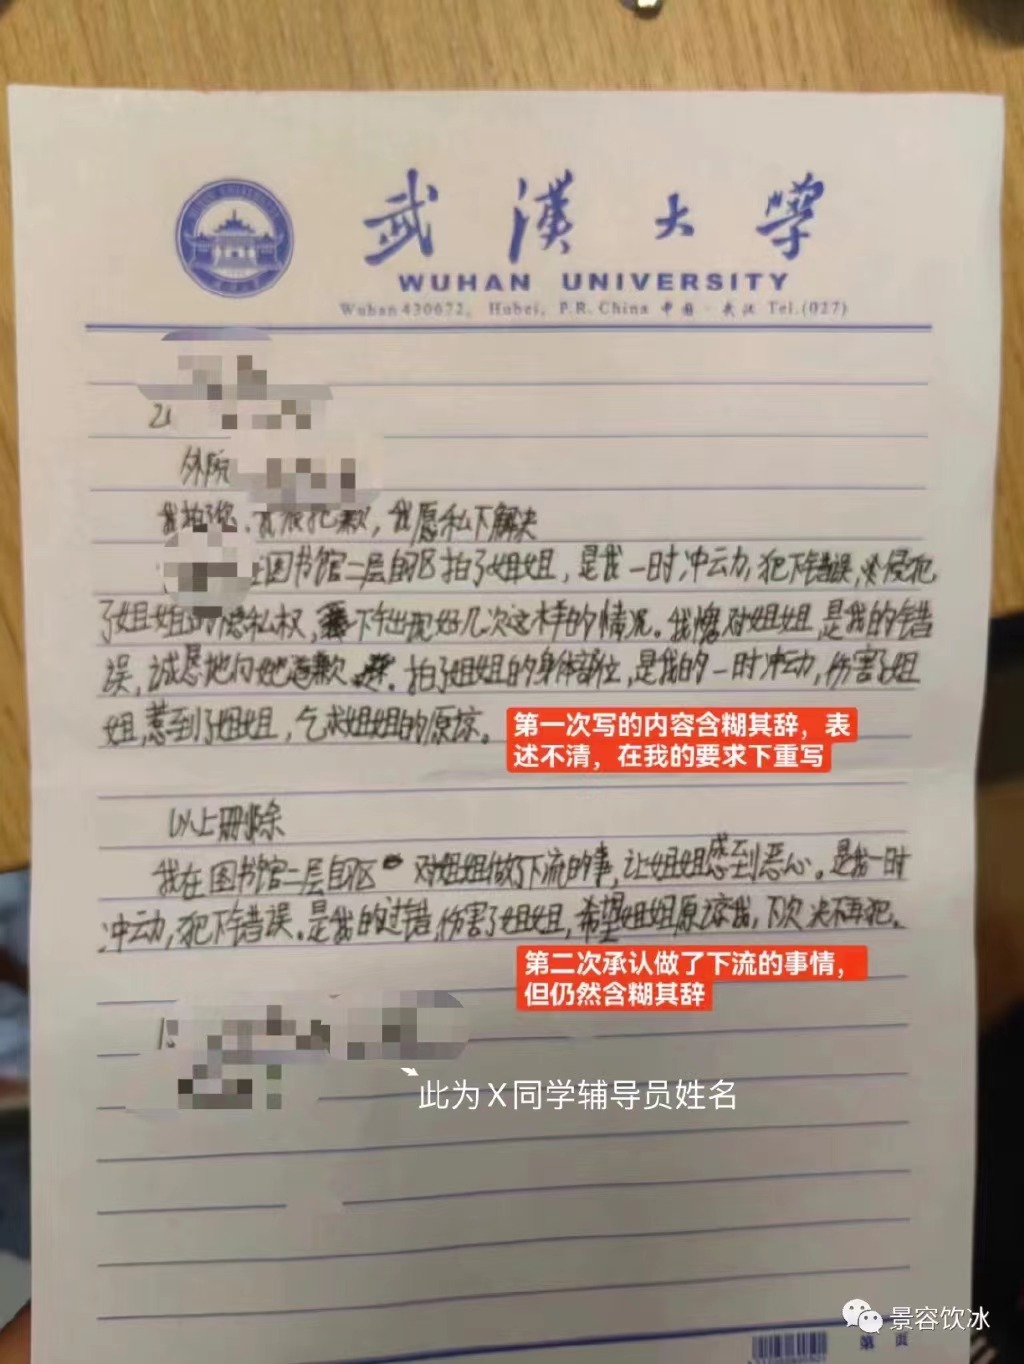 武漢大學
WUHAN UNIVERSITY
Wuhan 430072, Hubei, P.R. China 中国·武汉 Tel.(027)
外院
我拍了你,我很抱歉,我愿私下解决
在图书馆二层自习区拍了姐姐,是我一时冲动,犯下错误,侵犯
了姐姐的隐私权,下午出现好几次这样的情况。我愧对姐姐,是我的错
误,诚恳地向她道歉。拍了姐姐的身体部位,是我的一时冲动,伤害了姐
姐,惹到了姐姐,乞求姐姐的原谅。
第一次写的内容含糊其辞,表
述不清,在我的要求下重写
以上删除
我在图书馆二层自习区 对姐姐做了下流的事,让姐姐感到恶心。是我一时
冲动,犯下错误。是我的过错,伤害了姐姐,希望姐姐原谅我,下次决不再犯。
第二次承认做了下流的事情,
但仍然含糊其辞
此为X同学辅导员姓名
景容饮冰
第 页